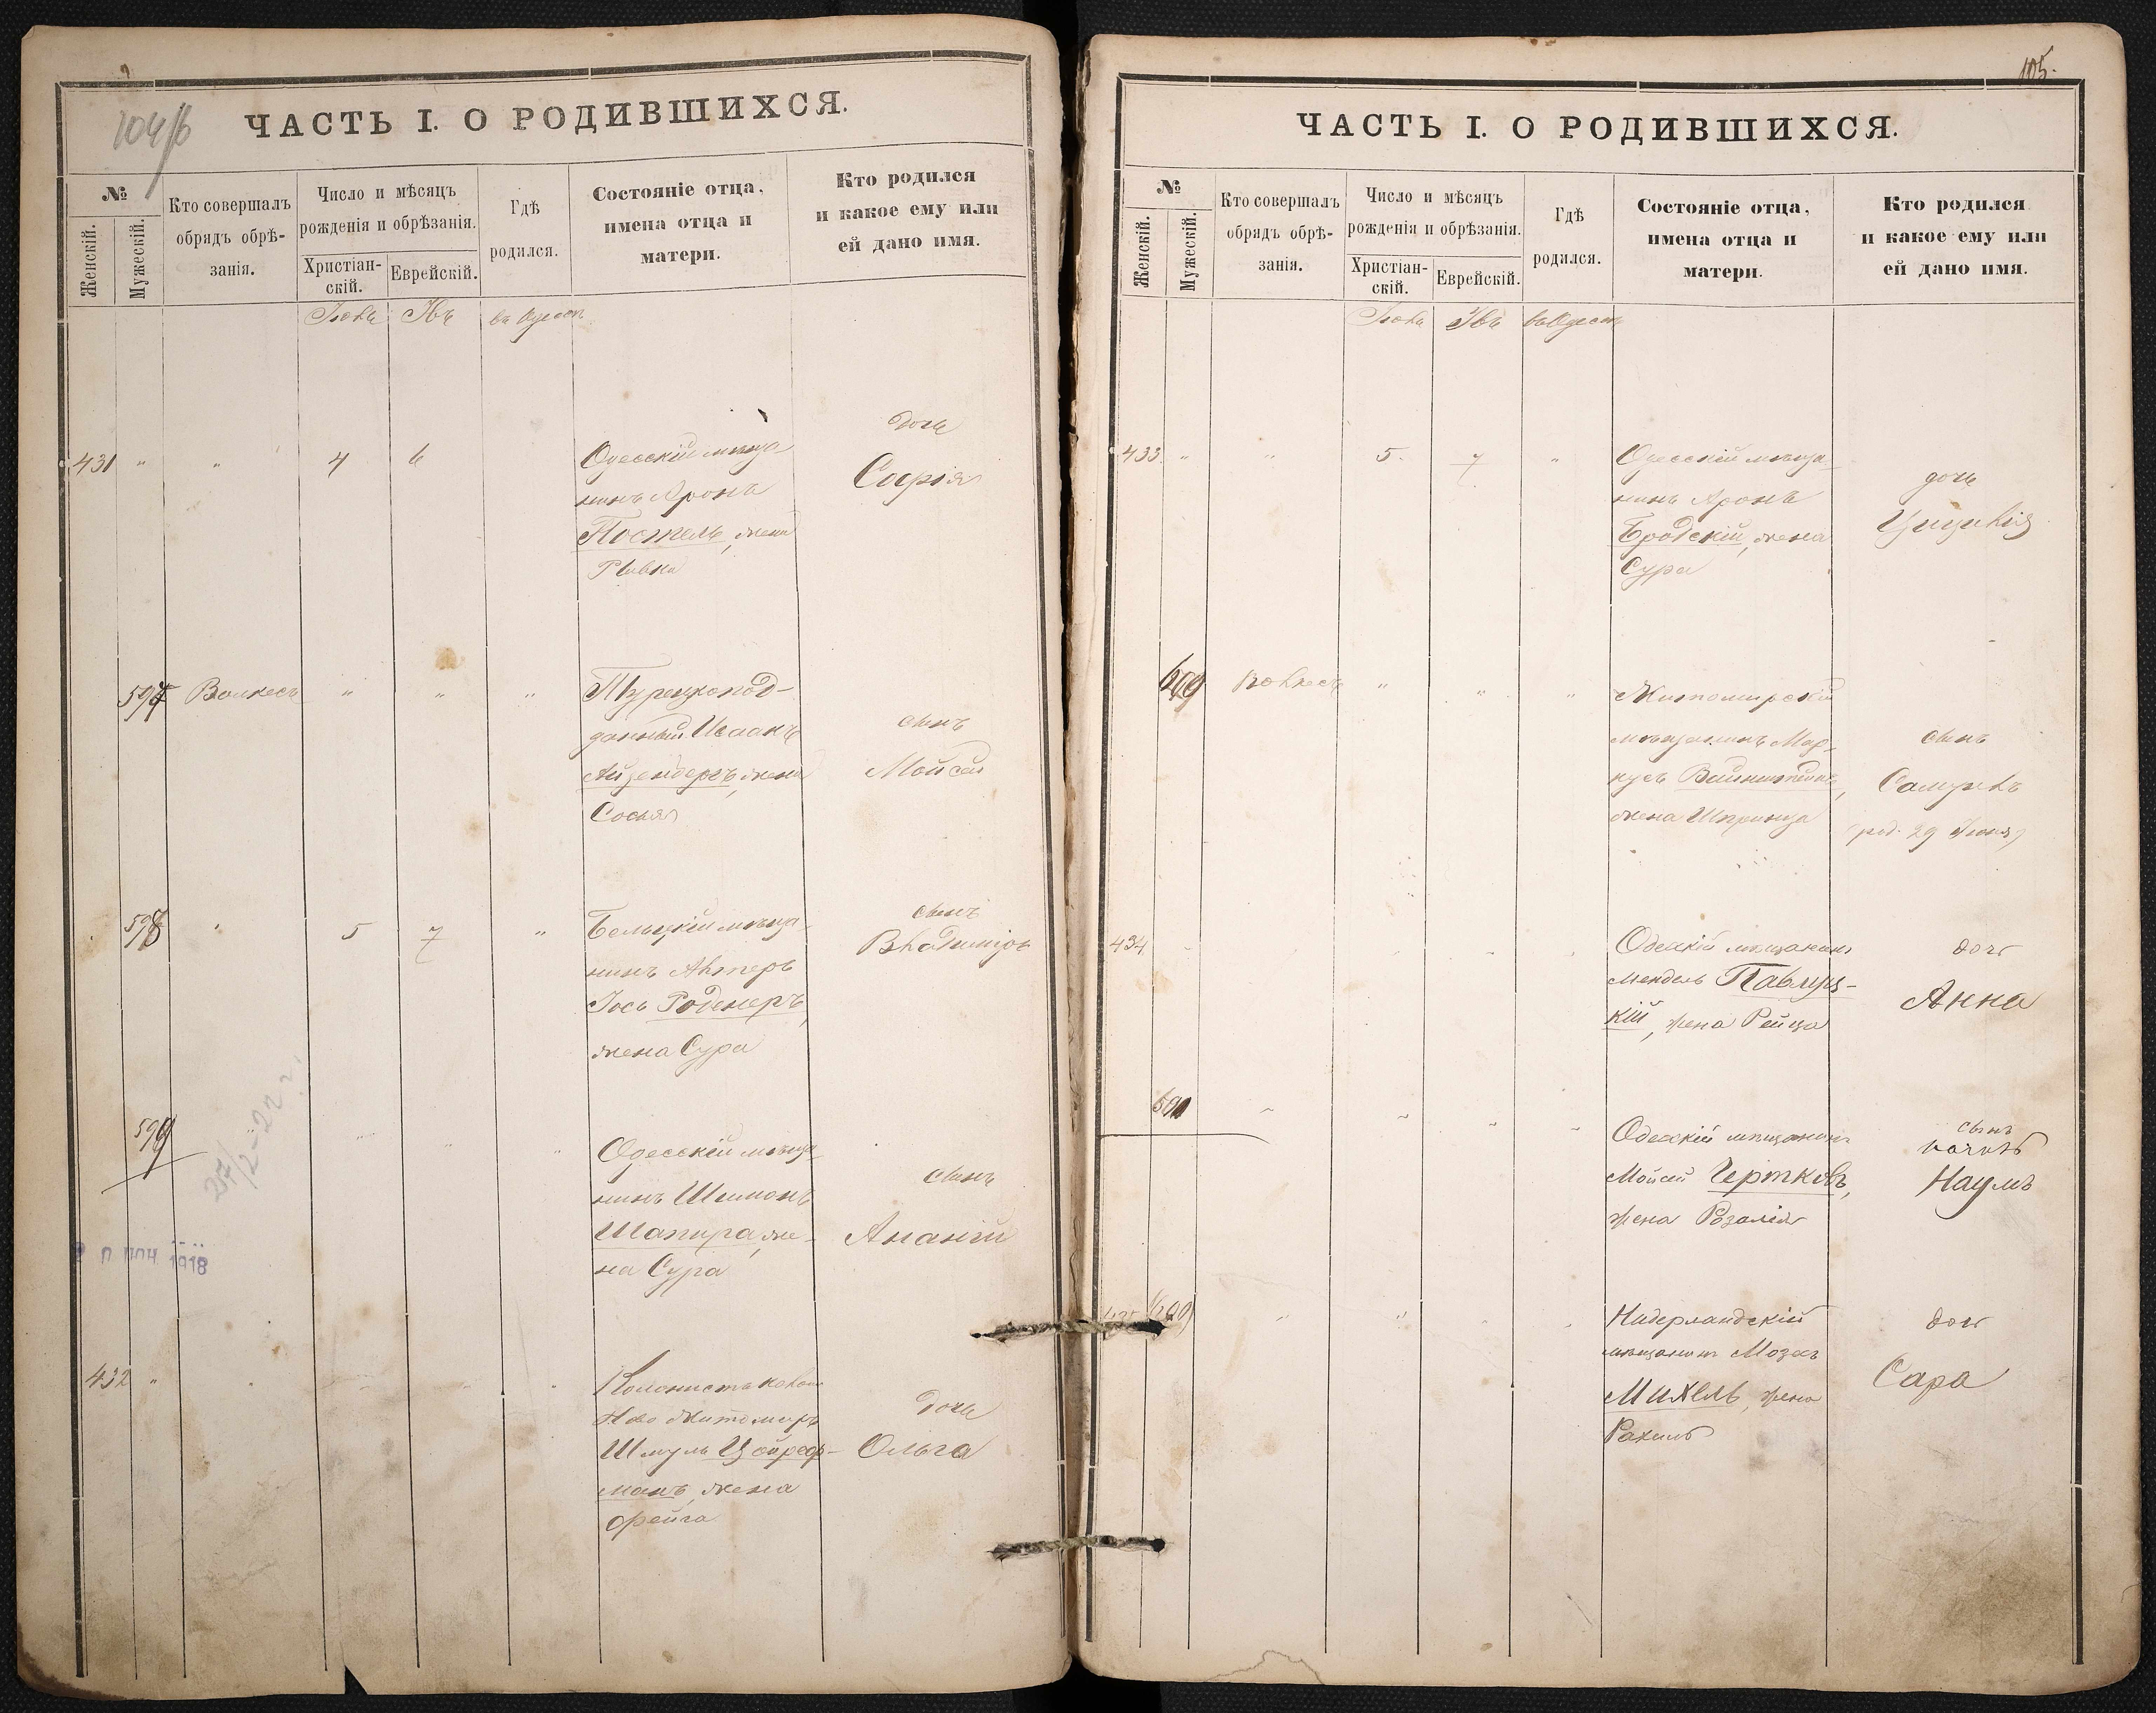 104/б
ЧАСТЬ I. О РОДИВШИХСЯ.
№
Женскій.
Мужескій.
Кто совершалъ
обрядъ обрѣ-
занія.
Число и мѣсяцъ
рожденія и обрѣзанія.
Христіан-
скій.
Еврейскій.
Гдѣ
родился.
Состояніе отца,
имена отца и
матери.
Кто родился
и какое ему или
ей дано имя.
431 " " 4 6
Одесскій мѣща
нинъ Аронъ
Постель, жена
Ривка
дочь
Софія
597 " " "
Турецкопод-
данный Исаакъ
Айзенбергъ, жена
Сосия
сынъ
Мойсей
598 " 5 7 "
Бельцкій мѣща-
нинъ Алтеръ
Іось Роденеръ,
жена Сура
сынъ
Владиміръ
599
Одесскій мѣща
нинъ Шимонъ
Шапира, же-
на Сура
сынъ
Ананій
1918
432 "
Колонистъ колон
Ново Житомиръ
Шмуль Цойреф-
манъ, жена
Фейга
дочь
Ольга
105.
ЧАСТЬ I. О РОДИВШИХСЯ.
№
Женскій.
Мужескій.
Кто совершалъ
обрядъ обрѣ-
занія.
Число и мѣсяцъ
рожденія и обрѣзанія.
Христіан-
скій.
Еврейскій.
Гдѣ
родился.
Состояніе отца,
имена отца и
матери.
Кто родился
и какое ему или
ей дано имя.
433 " " 5. 7 "
Одесскій мѣща-
нинъ Аронъ
Бродскій, жена
Сура
дочь
Цицилія
" " "
Житомирскій
мѣщанинъ Мар-
кусъ Вайнштейнъ,
жена Шпринца
сынъ
Самуилъ
(род. 29 Іюня)
434
Одесскій мѣщанинъ
Мендель Павлуц-
кій, жена Рейза
дочь
Анна
Одесскій мѣщанинъ
Мойсей Чертковъ,
жена Розалія
сынъ
Наумъ
435
Нидерландскій
мѣщанинъ Мозесъ
Михель, жена
Рахиль
дочь
Сара